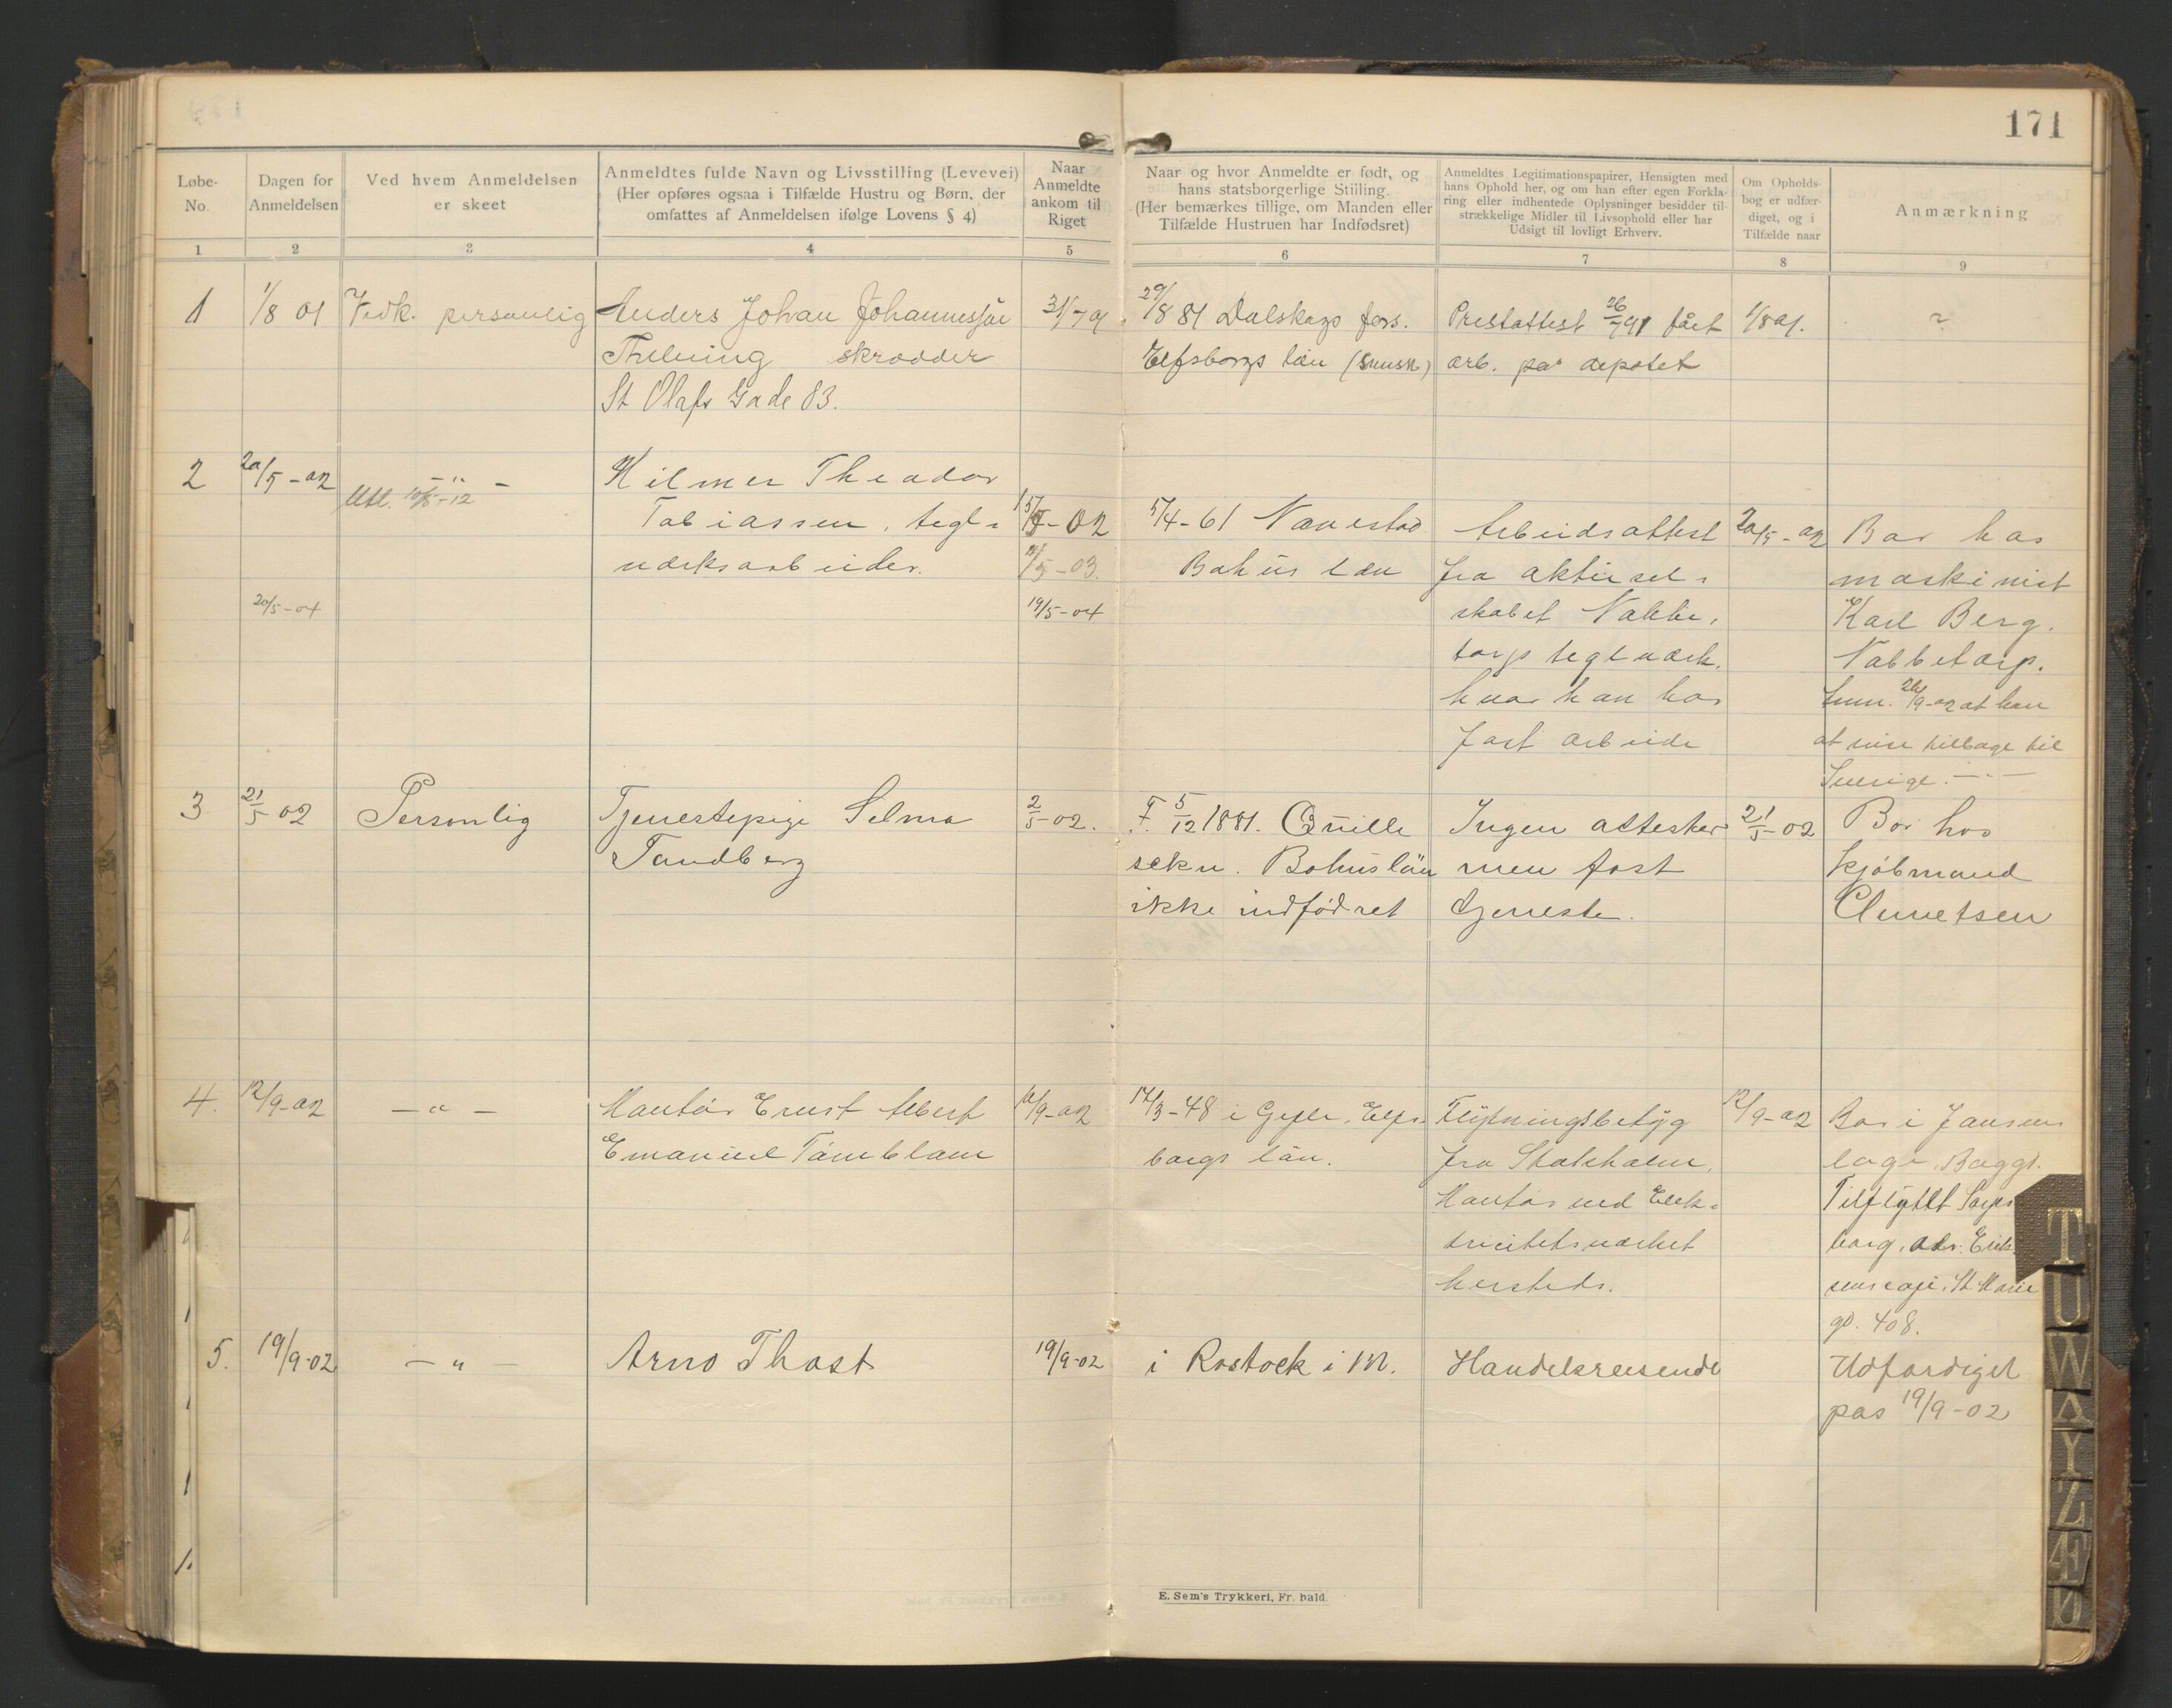 171
Løbe-No.
Dagen for Anmeldelsen
Ved hvem Anmeldelsen er skeet
Anmeldtes fulde Navn og Livsstilling (Levevei)
(Her opføres ogsaa i Tilfælde Hustru og Børn, der
omfattes af Anmeldelsen ifølge Lovens § 4)
Naar Anmeldte ankom til Riget
Naar og hvor Anmeldte er født, og
hans statsborgerlige Stiiling.
(Her bemærkes tillige, om Manden eller
Tilfælde Hustruen har Indfødsret)
Anmeldtes Legitimationspapirer, Hensigten med
hans Ophold her, og om han efter egen Forkla-
ring eller indhentede Oplysninger besidder til-
strækkelige Midler til Livsophold eller har
Udsigt til lovligt Erhverv.
Om Opholds-
bog er udfær-
diget, og i
Tilfælde naar
Anmærkning
1 2 3 4 5 6 7 8 9
1
1/8 01
Vedk. personlig
Anders Johan
skrædder
St Olafs Gade 83.
31/7 01
29/8 81 Dalskogs førs.
Elfsborgs län (svensk)
Prestattest 26/7 91 fået
arb. på depotet
1/8 01.
2
20/5-02
— " —
10/5-12
20/5-04
Hilmer Theodor
Tobiassen, tegl-
verksarbeider.
15/5-02
/5-03.
19/5-04
5/4-61 Navestad
Bohus Len
Arbeidsattest
fra aktiesel-
skabet Nabbe-
torps teglverk,
hvor han har
fast arbeide
20/5-02
Bor hos
maskinist
Karl Berg.
Nabbetorp.
/9-02 at han
at reise tilbage til
Sverige.
3
21/5 02
Personlig
Tjenestepige Selma
Tandberg
2/5-02.
F. 5/12 1881. Quille
sokn. Bohuslän
ikke indfødret
Ingen attester
men fast
tjeneste.
21/5-02
Bor hos
kjøbmand
Clemetsen
4.
12/9-02
— " —
Kontor Ernst Albert
Emanuel
/9-02
14/3-48 i Gefle, Elfs-
borgs län.
Flytningsbetyg
fra Stokholm.
Kontor ved Elek-
tricitetsverket
hersteds.
12/9-02
Bor i Jansens
Tilflyttet Sarps-
borg, adr. Erik-
St. Marie
gd. 408.
5.
19/9-02
— " —
Arno Thost
19/9-02
i Rostock i M.
Handelsreisende
Udfærdiget
pas 19/9-02
E. Sem's Trykkeri, Fr. hald.
T
U
W
A
Y
Z
Æ
Ø